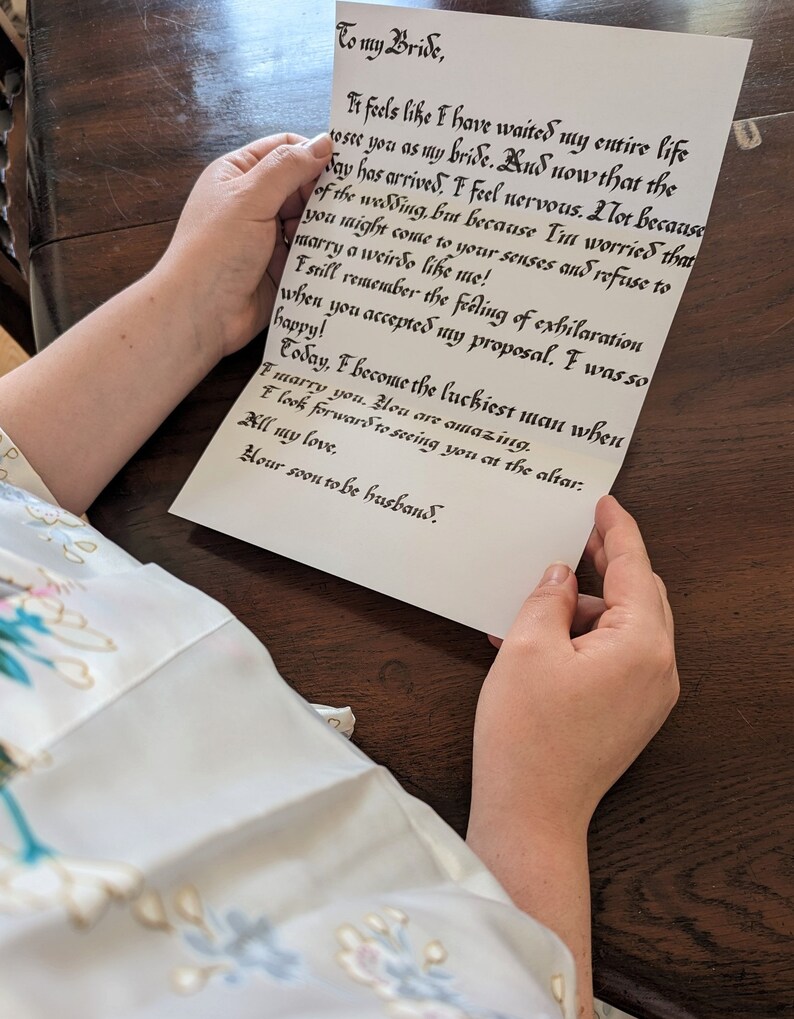 To my Bride,
It feels like I have waited my entire life
to see you as my bride. And now that the
day has arrived, I feel nervous. Not because
of the wedding, but because I'm worried that
you might come to your senses and refuse to
marry a weirdo like me!
I still remember the feeling of exhilaration
when you accepted my proposal. I was so
happy!
Today, I become the luckiest man when
I marry you. You are amazing.
I look forward to seeing you at the altar.
All my love,
Your soon to be husband.